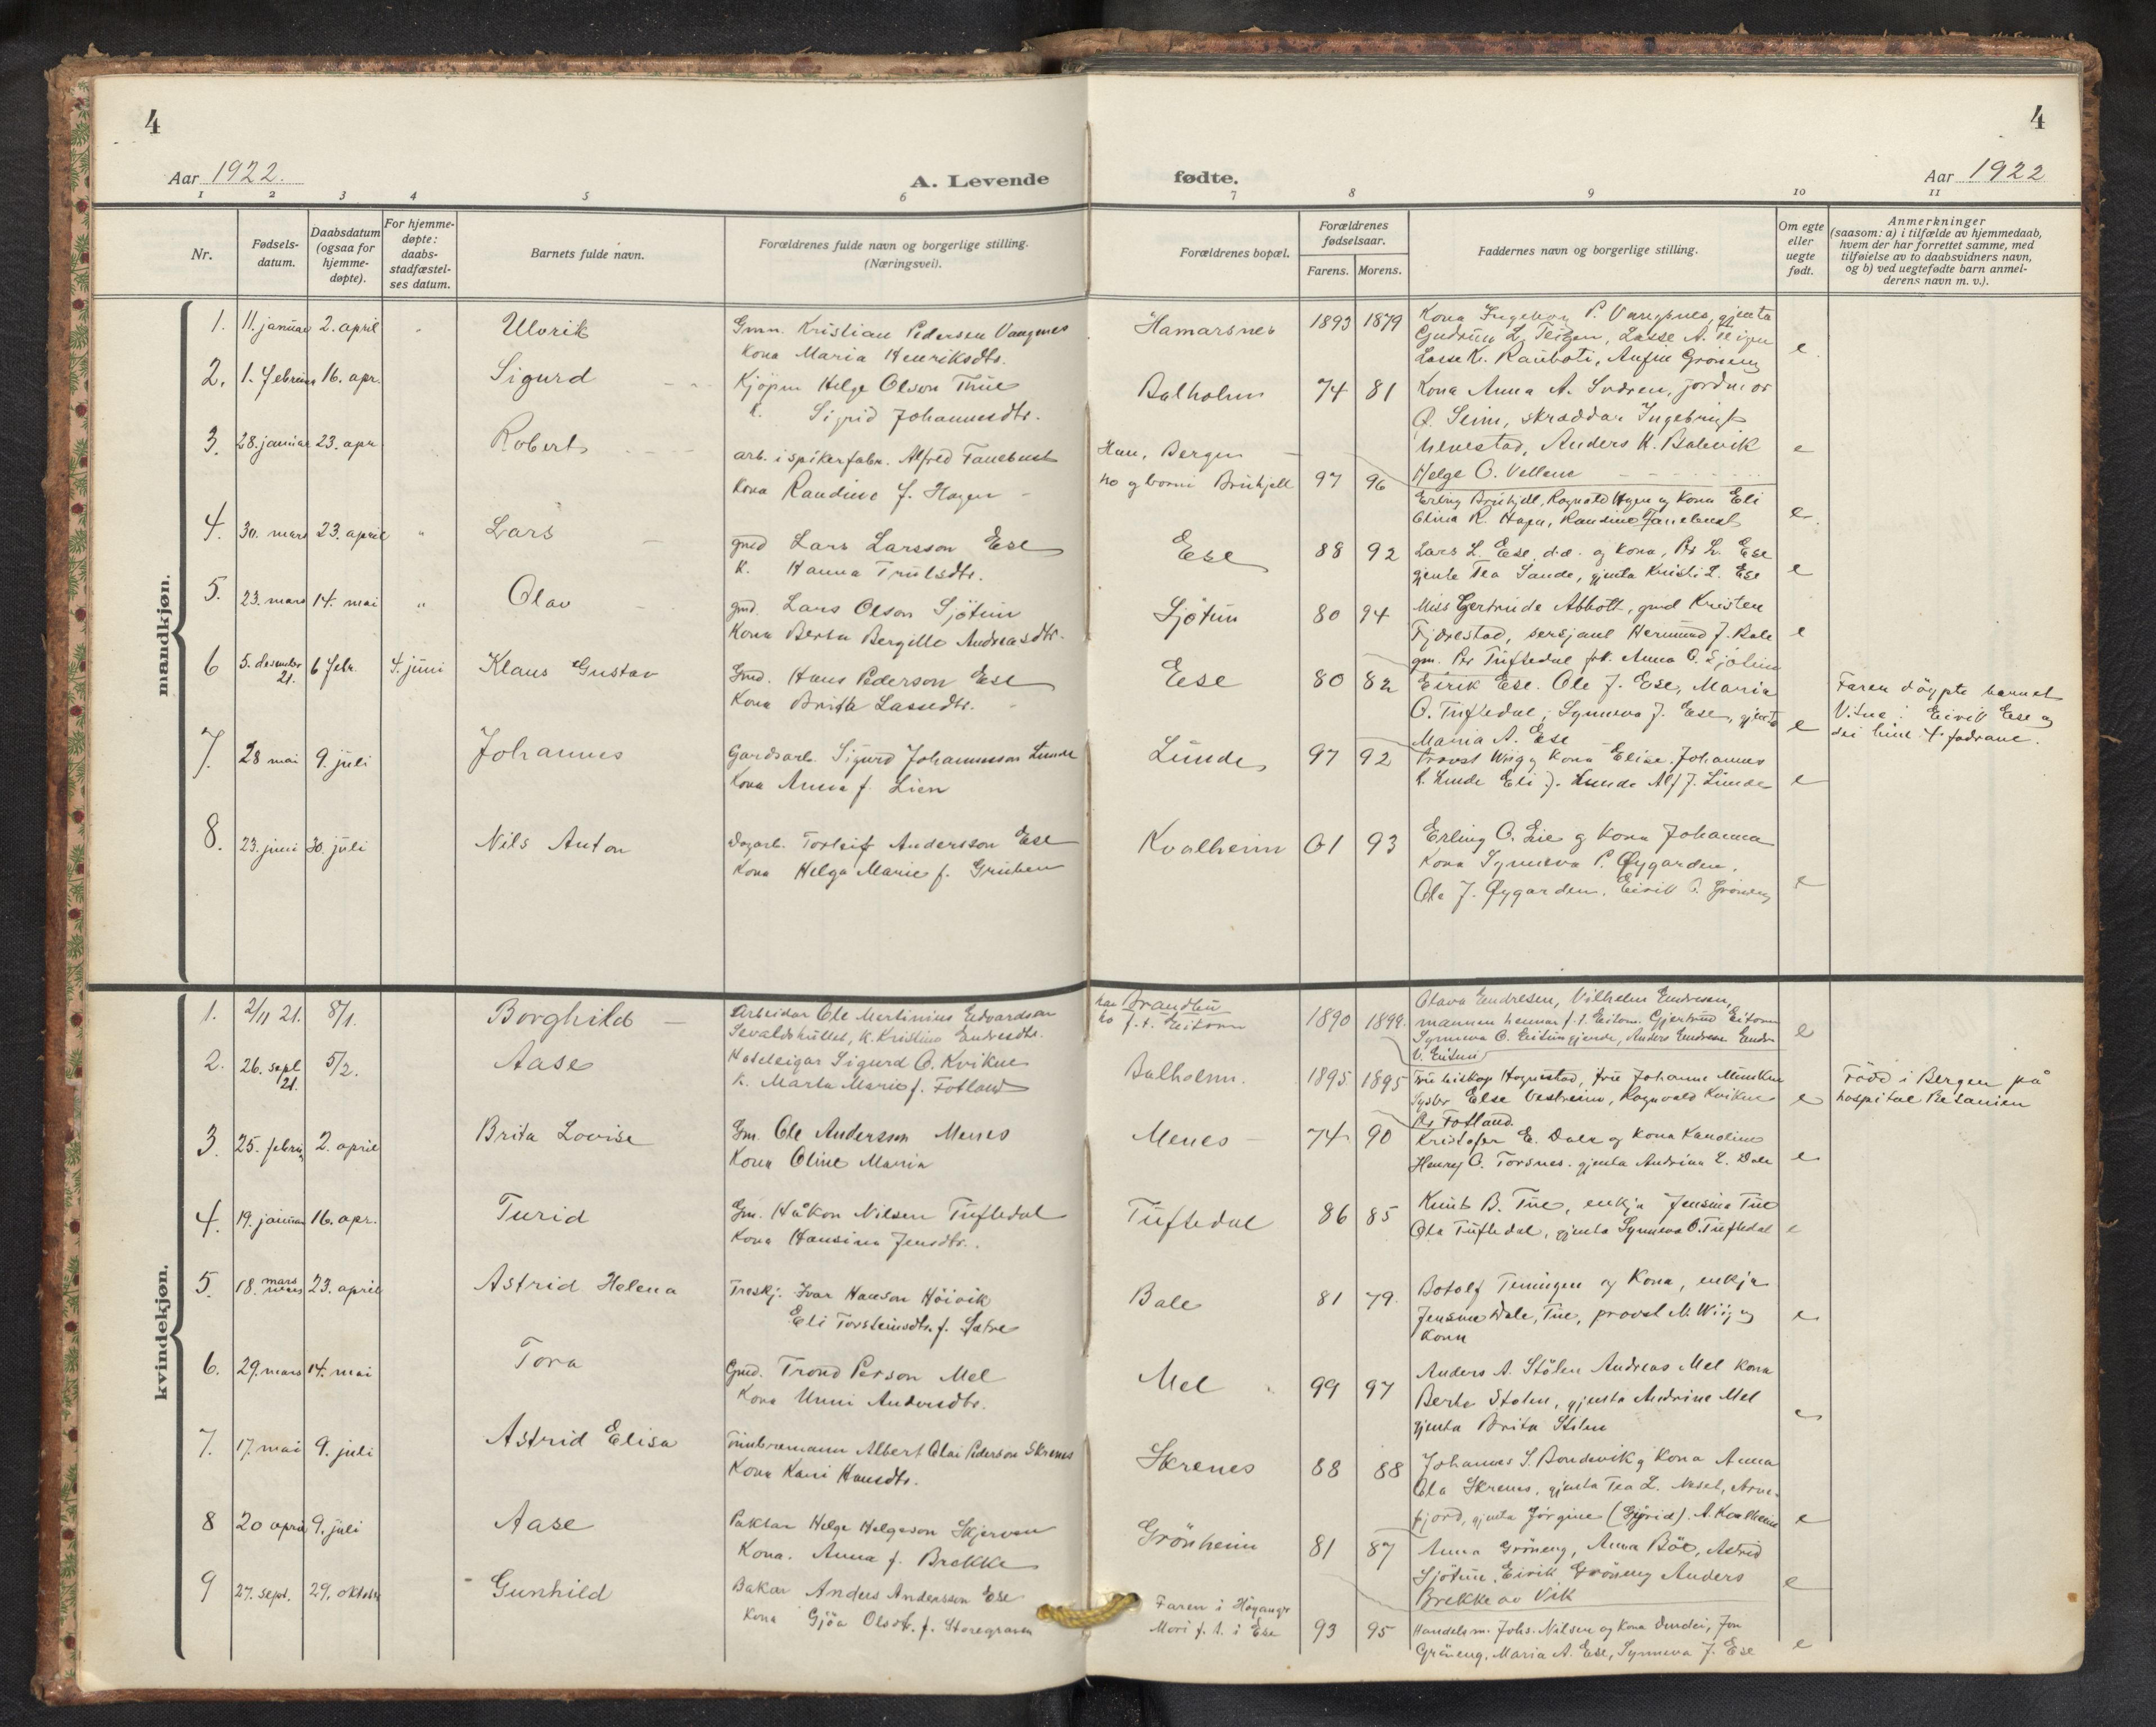 4
4
Aar 1922.
A. Levende
fødte.
Aar 1922
1 2 3 4 5 6 7 8 9 10 11
Nr.
Fødsels-
datum.
Daabsdatum
(ogsaa for
hjemme-
døpte).
For hjemme-
døpte:
daabs-
stadfæstel-
ses datum.
Barnets fulde navn.
Forældrenes fulde navn og borgerlige stilling.
(Næringsvei).
Forældrenes bopæl.
Forældrenes
fødselsaar.
Farens. Morens.
Faddernes navn og borgerlige stilling.
Om egte
eller
uegte
født.
Anmerkninger
(saasom: a) i tilfælde av hjemmedaab,
hvem der har forrettet samme, med
tilføielse av to daabsvidners navn,
og b) ved uegtefødte barn anmel-
derens navn m. v.).
mandkjøn.
1. 11. januar 2. april " Ulvrik
Gmn. Kristian Pedersen Vangsnes
Kona Maria Henriksdtr.
Hamarsnes 1893 1879
Kona Ingeborg P. Vangsnes, gjenta
Gudrun L. Teigen, Lasse A. Teigen
Lasse K. Rauboti, Anfin Gröneng
e
2. 1. februar 16. apr. Sigurd
Kjöpm Helge Olson Thue
K. Sigrid Johannesdtr.
Balholm 74 81
Kona Anna A. Svären, jordmor
O. Seim, skræddar Ingebrigt
Anders H. Balevik
Helge O. Vellene
e
3. 28. januar 23. apr. Robert
arb. i spikerfabr. Alfred Tanebust
Kona Randine f. Hagen
Han, Bergen
ho og borni Bruhjell 97 96
Erling Bruhjell, Rognald Hagen og Kona Eli
Olina R. Hagen, Randine Tanebust
e
4. 30. mars 23. april " Lars
gmd Lars Larsson Ese
K. Hanna Trulsdtr.
Ese 88 92
Lars L. Ese d.æ. og kona, Per L. Ese
gjenta Tea Sande, gjenta Kristi L. Ese
e
5. 23. mars 14. mai " Olav
gmd. Lars Olson Sjötun
Kona Berta Bergitte Andreasdtr.
Sjötun 80 94
Miss Gertrude Abbott, gmd Kristen
Fjærestad, sersjant Hermund J. Bale
gm. Per Tuftedal, frk. Anna O. Sjötun
e
6 5. desember 21. 6 febr. 4. juni Klaus Gustav
Gmd. Hans Pederson Ese
Kona Brita Lassedtr.
Ese 80 82
Eirik Ese. Ole J. Ese, Maria
O. Tuftedal, Synneva J. Ese, gjenta
Maria A. Ese
e
Faren döypte barnet
Vitne: Eirik Ese og
dei hine 4 fadrane.
7. 28 mai 9. juli Johannes
Gardsarb. Sigurd Johannesson Lunde
Kona Anna f. Lien
Lunde 97 92
Provst Wiig og Kona Elise. Johannes
L. Lunde Eli J. Lunde Alf J. Lunde
e
8. 23. juni 30. juli Nils Anton
Dagarb. Torleif Andersson Ese
Kona Helga Marie f. Gruben
Kvalheim 01 93
Erling O. Lie og kona Johanna
Kona Synneva P. Øygarden,
Ola J. Øygarden. Eirik P. Gröneng
e
kvindekjøn.
1. 2/11 21. 8/1. Borghild
Arbeidar Ole Martinius Edvardson
Sevaldshullet, K. Kristine Endresdtr.
han Brandbu
ho f.t. Eitorn 1890 1899.
Olava Endresen, Vilhelm Endresen,
mannen hennar f.t. Eitorn. Gjertrud Eitorn
Synneva O. Eitungjerde, Anders Endresen Endre
V. Eitun
e
2. 26. sept 21. 5/2. Aase
Hoteleigar Sigurd O. Kvikne
K. Marta Marie f. Fotland
Balholm. 1895. 1895
Frú biskop Hognestad, frú Johanne Munken
Syster Else Vestreim, Rognvald Kvikne
Per Fotland.
e
Född i Bergen på
hospital Betanien
3. 25. februar 2. april Brita Lovise
Gm. Ole Andersson Menes
Kona Oline Maria
Menes 74 90
Kristofer E. Dale og kona Karoline
Henry O. Torsnes. gjenta Andrina L. Dale
e
4. 19. januar 16. apr. Turid
Gm. Håkon Nilsen Tuftedal
Kona Hansina Jensdtr.
Tuftedal 86 85
Knut B. Tue, enkja Jensina Tue
Ola Tuftedal, gjenta Synneva O. Tuftedal
e
5. 18. mars 23. april Astrid Helena
Treskj. Ivar Hanson Höivik
Eli Torsteinsdtr. f. Sætre
Bale 81 79.
Botolf Teningen og Kona, enkja
Jensina Dale, Tue, provst N. Wiig og
Kona
e
6. 29. mars 14. mai Tora
Gmd. Trond Person Mel
Kona Unni Andersdtr.
Mel 99 97
Anders A. Stölen Andreas Mel kona
Berta Stölen, gjenta Andrine Mel
gjenta Brita Stölen
e
7. 17. mai 9. juli Astrid Elisa
Tömbremann Albert Olai Pederson Skrenes
Kona Kari Hansdtr.
Skrenes 88 88
Johannes S. Bondevik og kona Anna
Ola Skrenes, gjenta Tea L. Neset, Arne-
fjord, gjenta Jörgine (Gjyrid) A. Kvalheim
e
8 20 april 9. juli Aase
Paktar Helge Helgeson Skjerven
Kona. Anna f. Brekke
Grönheim 81 87
Anna Gröneng, Anna Böe, Astrid
Sjötun, Eirik Gröneng Anders
Brekke av Vik
e
9 27. sept. 29. oktober Gunhild
Bakar Anders Andersson Ese
Kona Gjöa Olsdtr. f. Storegraven
Faren i Höyanger
Mori f.t. i Ese 93 95
Handelsm. Johs. Nilsen og kona Dundei, Jon
Gröneng, Maria A. Ese, Synneva J. Ese
e